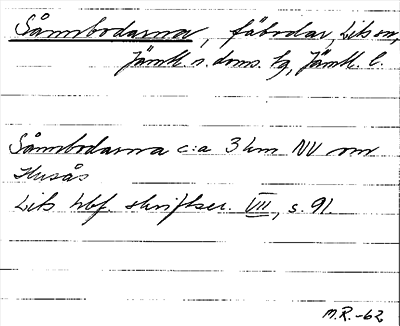 Sånnbodarna, fäbodar, Lits sn,
Jämtl. n. doms. tg, Jämtl. l.
Sånnbodarna c:a 3 km NV om
Husås
Lits hbf. skriftser. VII, s. 91.
M.R.-62